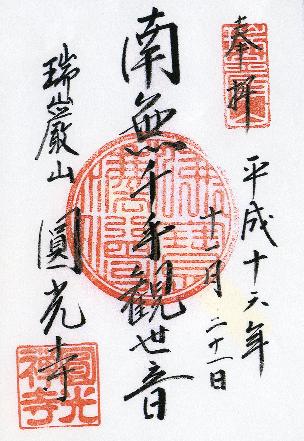 奉拝
平成十六年
十一月二十一日
南無千手観世音
瑞巌山 圓光寺
圓光禅寺